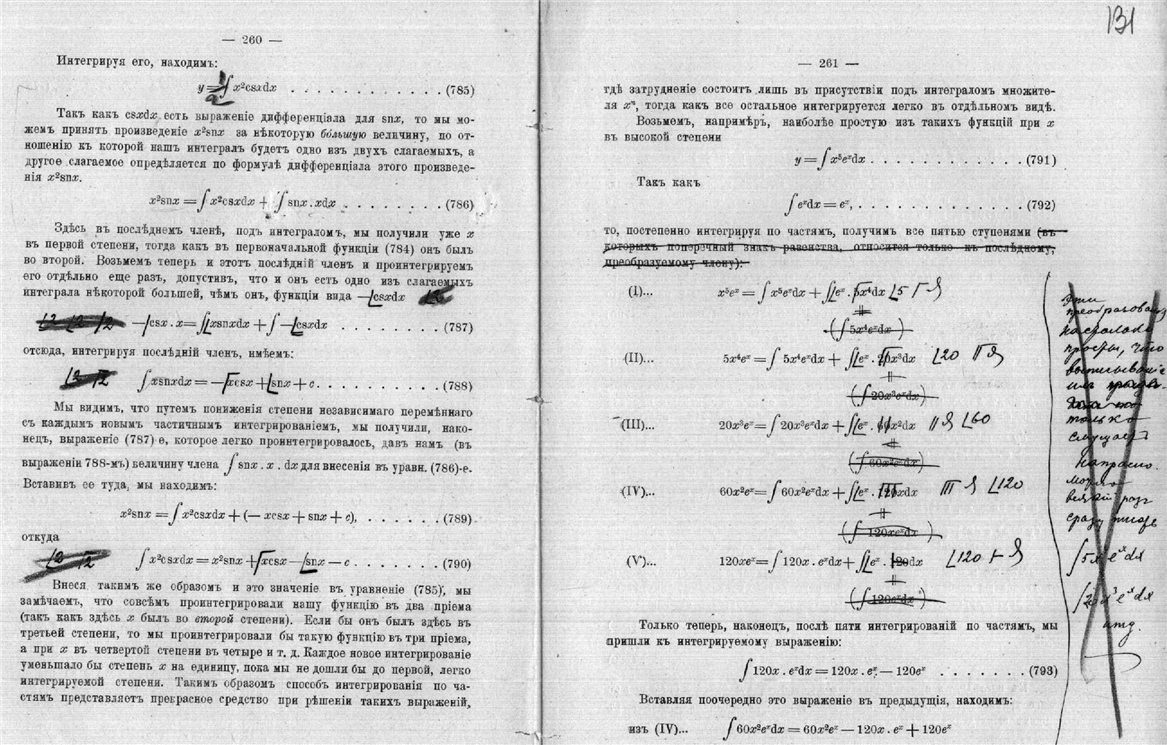 — 260 —
Интегрируя его, находимъ:
y = ∫ x²csxdx . . . . . . . . . . . . (785)
Такъ какъ csxdx есть выраженіе дифференціала для snx, то мы мо-
жемъ принять произведеніе x²snx за нѣкоторую бо́льшую величину, по от-
ношенію къ которой нашъ интегралъ будетъ одно изъ двухъ слагаемыхъ, а
другое слагаемое опредѣляется по формулѣ дифференціала этого произведе-
нія x²snx.
x²snx = ∫ x²csxdx + ∫ snx . xdx . . . . . . . . (786)
Здѣсь въ послѣднемъ членѣ, подъ интеграломъ, мы получили уже x
въ первой степени, тогда какъ въ первоначальной функціи (784) онъ былъ
во второй. Возьмемъ теперь и этотъ послѣдній членъ и проинтегрируемъ
его отдѣльно еще разъ, допустивъ, что и онъ есть одно изъ слагаемыхъ
интеграла нѣкоторой большей, чѣмъ онъ, функціи вида —csxdx
—csx . x = ∫ xsnxdx + ∫ —csxdx . . . . . . . . (787)
отсюда, интегрируя послѣдній членъ, имѣемъ:
∫ xsnxdx = —xcsx + snx + c . . . . . . . . . (788)
Мы видимъ, что путемъ пониженія степени независимаго перемѣннаго
съ каждымъ новымъ частичнымъ интегрированіемъ, мы получили, нако-
нецъ, выраженіе (787) е, которое легко проинтегрировалось, давъ намъ (въ
выраженіи 788-мъ) величину члена ∫ snx . x . dx для внесенія въ уравн. (786)-е.
Вставивъ ее туда, мы находимъ:
x²snx = ∫ x²csxdx + (— xcsx + snx + c), . . . . . . . (789)
откуда
∫ x²csxdx = x²snx + xcsx — snx — c . . . . . . . . (790)
Внеся такимъ же образомъ и это значеніе въ уравненіе (785), мы
замѣчаемъ, что совсѣмъ проинтегрировали нашу функцію въ два пріема
(такъ какъ здѣсь x былъ во второй степени). Если бы онъ былъ здѣсь въ
третьей степени, то мы проинтегрировали бы такую функцію въ три пріема,
а при x въ четвертой степени въ четыре и т. д. Каждое новое интегрированіе
уменьшало бы степень x на единицу, пока мы не дошли бы до первой, легко
интегрируемой степени. Такимъ образомъ способъ интегрированія по ча-
стямъ представляетъ прекрасное средство при рѣшеніи такихъ выраженій,
131
— 261 —
гдѣ затрудненіе состоитъ лишь въ присутствіи подъ интеграломъ множите-
ля xⁿ, тогда какъ все остальное интегрируется легко въ отдѣльномъ видѣ.
Возьмемъ, напримѣръ, наиболѣе простую изъ такихъ функцій при x
въ высокой степени
y = ∫ x⁵eˣdx . . . . . . . . . . . . (791)
Такъ какъ
∫ eˣdx = eˣ, . . . . . . . . . . . . . (792)
то, постепенно интегрируя по частямъ, получимъ все пятью ступенями (въ
которыхъ поперечный знакъ равенства, относится только къ послѣднему,
преобразуемому члену):
(I)... x⁵eˣ = ∫ x⁵eˣdx + ∫ eˣ . 5x⁴dx
=
(∫ 5x⁴eˣdx)
(II)... 5x⁴eˣ = ∫ 5x⁴eˣdx + ∫ eˣ . 20x³dx
=
(∫ 20x³eˣdx)
(III)... 20x³eˣ = ∫ 20x³eˣdx + ∫ eˣ . 60x²dx
=
(∫ 60x²eˣdx)
(IV)... 60x²eˣ = ∫ 60x²eˣdx + ∫ eˣ . 120xdx
=
(∫ 120xeˣdx)
(V)... 120xeˣ = ∫ 120x . eˣdx + ∫ eˣ . 120dx
=
(∫ 120eˣdx)
Эти
преобразованія
настолько
просты, что
выписываніе
только
случает
напрасно.
можно
всякій разъ
сразу писать
∫ 5x⁴eˣdx
∫ 20x³eˣdx
итд.
Только теперь, наконецъ, послѣ пяти интегрированій по частямъ, мы
пришли къ интегрируемому выраженію:
∫ 120x . eˣdx = 120x . eˣ — 120eˣ . . . . . . . (793)
Вставляя поочередно это выраженіе въ предыдущія, находимъ:
изъ (IV)... ∫ 60x²eˣdx = 60x²eˣ — 120x . eˣ + 120eˣ